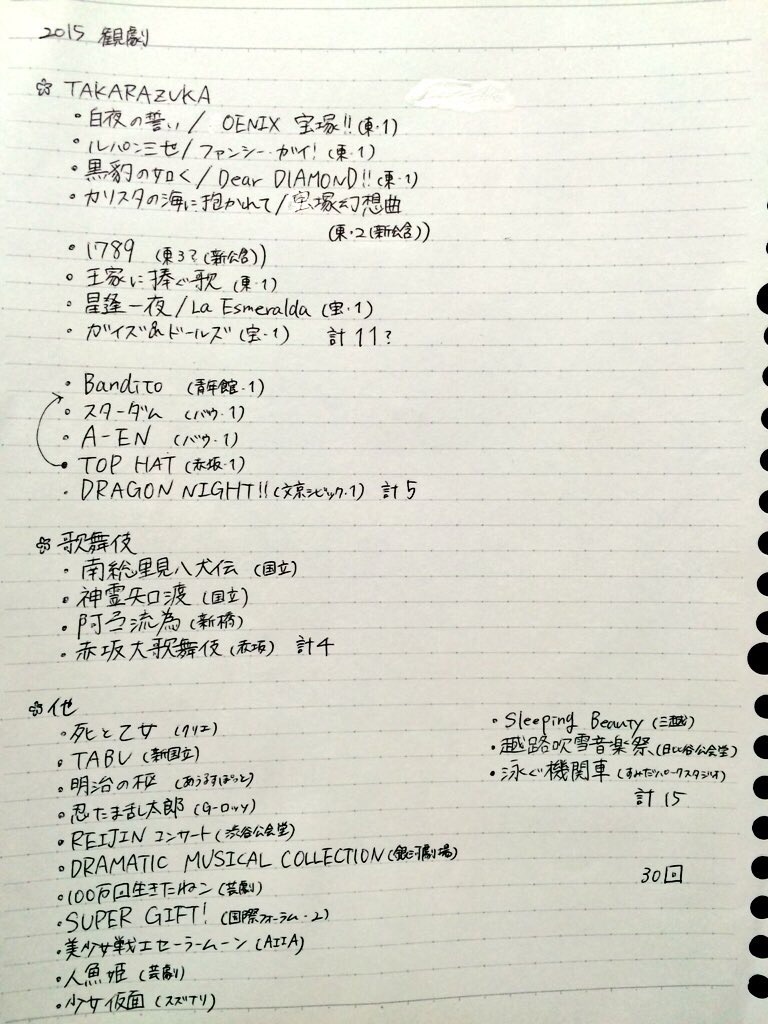 2015 観劇
☆ TAKARAZUKA
・白夜の誓い / OENIX 宝塚!! (東・1)
・ルパン三世 / ファンシー・ガイ! (東・1)
・黒豹の如く / Dear DIAMOND!! (東・1)
・カリスタの海に抱かれて / 宝塚幻想曲
(東・2 (新公含))
・1789 (東3? (新公含))
・王家に捧ぐ歌 (東・1)
・星逢一夜 / La Esmeralda (宝・1)
・ガイズ&ドールズ (宝・1) 計11?
・Bandito (青年館・1)
・スターダム (バウ・1)
・A-EN (バウ・1)
・TOP HAT (赤坂・1)
・DRAGON NIGHT!! (文京シビック・1) 計5
☆ 歌舞伎
・南総里見八犬伝 (国立)
・神霊矢口渡 (国立)
・阿弖流為 (新橋)
・赤坂大歌舞伎 (赤坂) 計4
☆ 他
・死と乙女 (クリエ)
・TABU (新国立)
・明治の柩 (あうるすぽっと)
・忍たま乱太郎 (Gーロッソ)
・REIJIN コンサート (渋谷公会堂)
・DRAMATIC MUSICAL COLLECTION (銀河劇場)
・100万回生きたねこ (芸劇)
・SUPER GIFT! (国際フォーラム・2)
・美少女戦士セーラームーン (AiiA)
・人魚姫 (芸劇)
・少女仮面 (スズナリ)
・Sleeping Beauty (三越)
・越路吹雪音楽祭 (日比谷公会堂)
・泳ぐ機関車 (すみだパークスタジオ)
計15
30回